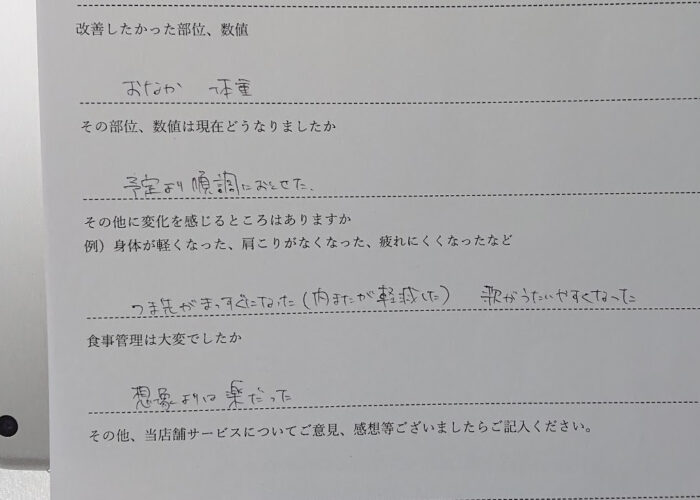 改善したかった部位、数値
おなか　体重
その部位、数値は現在どうなりましたか
予定より順調におとせた.
その他に変化を感じるところはありますか
例）身体が軽くなった、肩こりがなくなった、疲れにくくなったなど
つま先がまっすぐになった(内またが軽減した)　歌がうたいやすくなった
食事管理は大変でしたか
想象よりは楽だった
その他、当店舗サービスについてご意見、感想等ございましたらご記入ください。